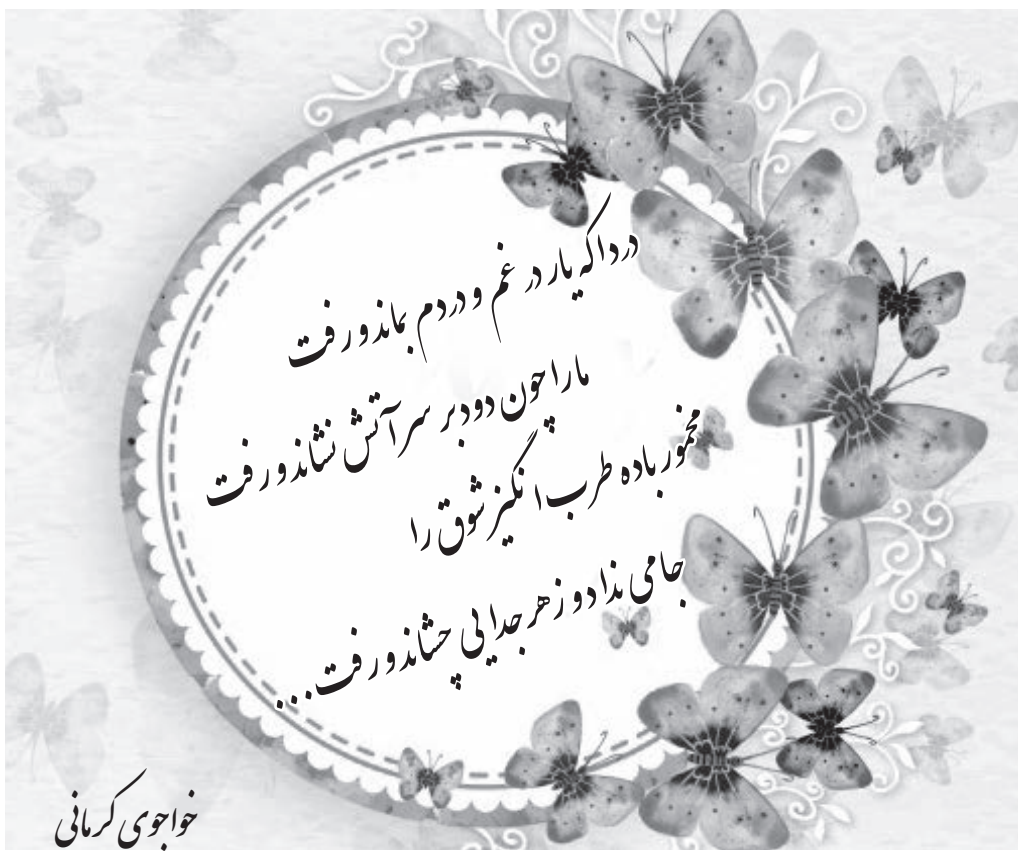 درداکه یار در غم و دردم بماند و رفت
ما را چون دود بر سر آتش نشاند و رفت
مخمور باده طرب انگیز شوق را
جامی نداد و زهر جدایی چشاند و رفت...
خواجوی کرمانی